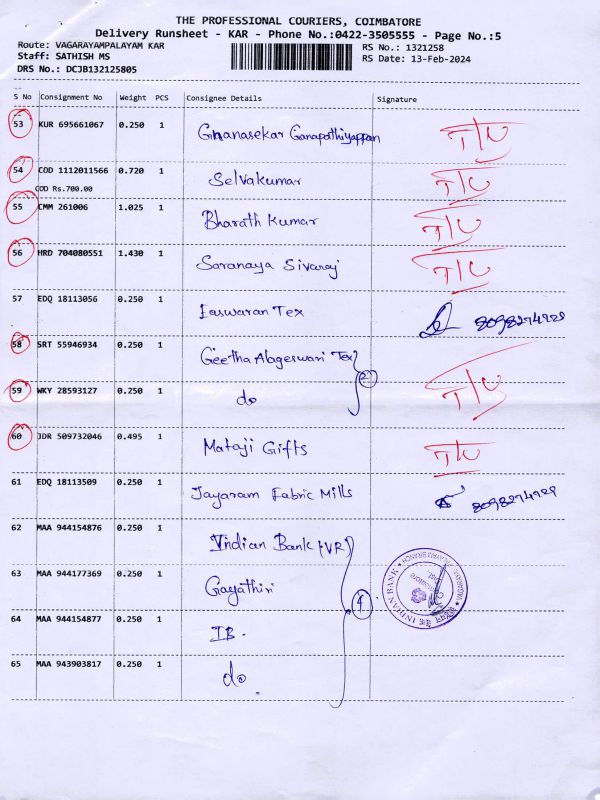 THE PROFESSIONAL COURIERS, COIMBATORE
Delivery Runsheet - KAR - Phone No.:0422-3505555 - Page No.:5
Route: VAGARAYAMPALAYAM KAR
RS No.: 1321258
Staff: SATHISH MS
RS Date: 13-Feb-2024
DRS No.: DCJB132125805
S No Consignment No Weight PCS Consignee Details Signature
53 KUR 695661067 0.250 1 Gnanasekar Ganapathiyappan T/U
54 COD 1112011566 0.720 1 Selvakumar T/U
COD Rs.700.00
55 CMM 261006 1.025 1 Bharath Kumar T/U
56 HRD 704080551 1.430 1 Saranaya Sivaraj T/U
57 EDQ 18113056 0.250 1 Easwaran Tex 8098274929
58 SRT 55946934 0.250 1 Geetha Alageswari Tex
59 WKY 28593127 0.250 1 do 2 T/U
60 JDR 509732046 0.495 1 Mataji Gifts T/U
61 EDQ 18113509 0.250 1 Jayaram Fabric Mills 8098274929
62 MAA 944154876 0.250 1 Indian Bank (VR)
63 MAA 944177369 0.250 1 Gayathiri 4 INDIAN BANK
64 MAA 944154877 0.250 1 IB.
65 MAA 943903817 0.250 1 do